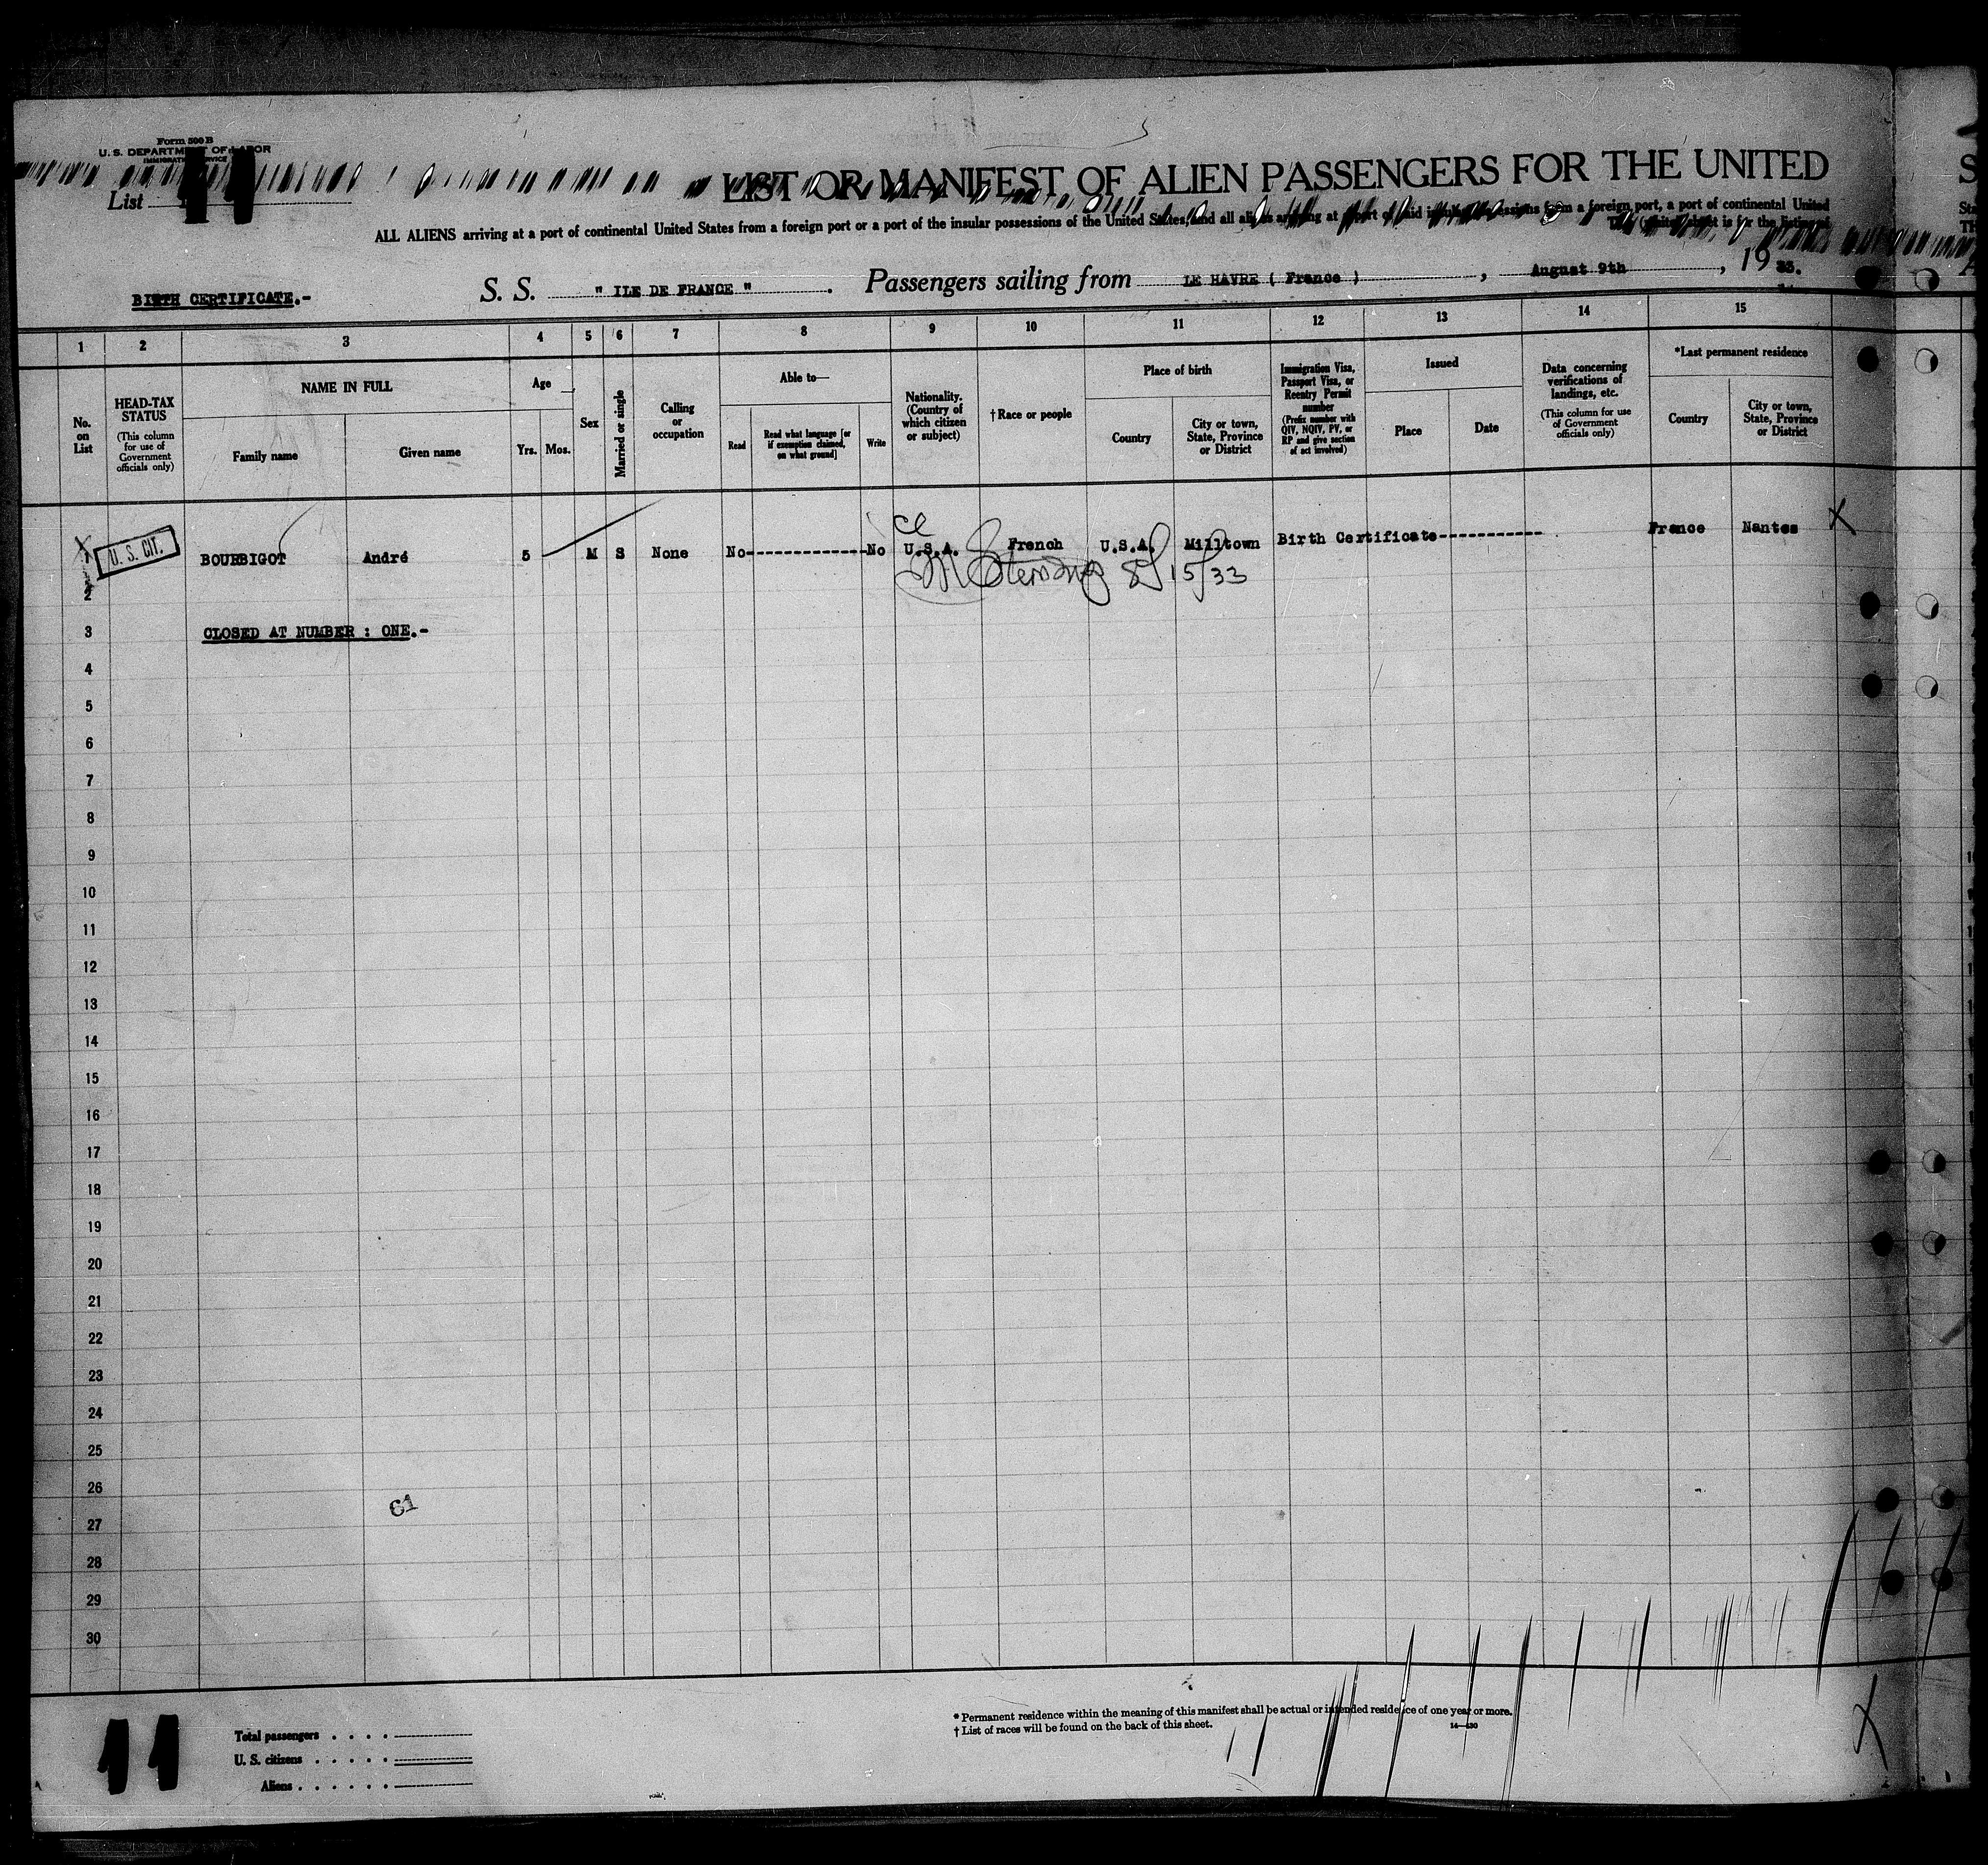 Form 500 B
U. S. DEPARTMENT OF LABOR
IMMIGRATION SERVICE
List 11
LIST OR MANIFEST OF ALIEN PASSENGERS FOR THE UNITED
ALL ALIENS arriving at a port of continental United States from a foreign port or a port of the insular possessions of the United States, and all aliens arriving at a port of said insular possessions from a foreign port, a port of continental United
BIRTH CERTIFICATE.-
S. S. " ILE DE FRANCE " . Passengers sailing from LE HAVRE ( France ) , August 9th , 19 33.
1 2 3 4 5 6 7 8 9 10 11 12 13 14 15
No. on List
HEAD-TAX STATUS
(This column for use of Government officials only)
NAME IN FULL
Family name
Given name
Age
Yrs. Mos.
Sex
Married or single
Calling or occupation
Able to—
Read
Read what language [or if exemption claimed, on what ground]
Write
Nationality. (Country of which citizen or subject)
†Race or people
Place of birth
Country
City or town, State, Province or District
Immigration Visa, Passport Visa, or Reentry Permit number
(Prefix number with QIV, NQIV, PV, or RP and give section of act involved)
Issued
Place
Date
Data concerning verifications of landings, etc.
(This column for use of Government officials only)
*Last permanent residence
Country
City or town, State, Province or District
U. S. CIT.
1 BOURBIGOT André 5 M S None No--------------No U.S.A. French U.S.A. Milltown Birth Certificate----------- France Nantes X
8/15/33
2
3 CLOSED AT NUMBER : ONE.-
4
5
6
7
8
9
10
11
12
13
14
15
16
17
18
19
20
21
22
23
24
25
26
61
27
28
29
30
11
Total passengers . . . .
U. S. citizens . . . . .
Aliens . . . . . .
* Permanent residence within the meaning of this manifest shall be actual or intended residence of one year or more.
† List of races will be found on the back of this sheet.
14—430
X